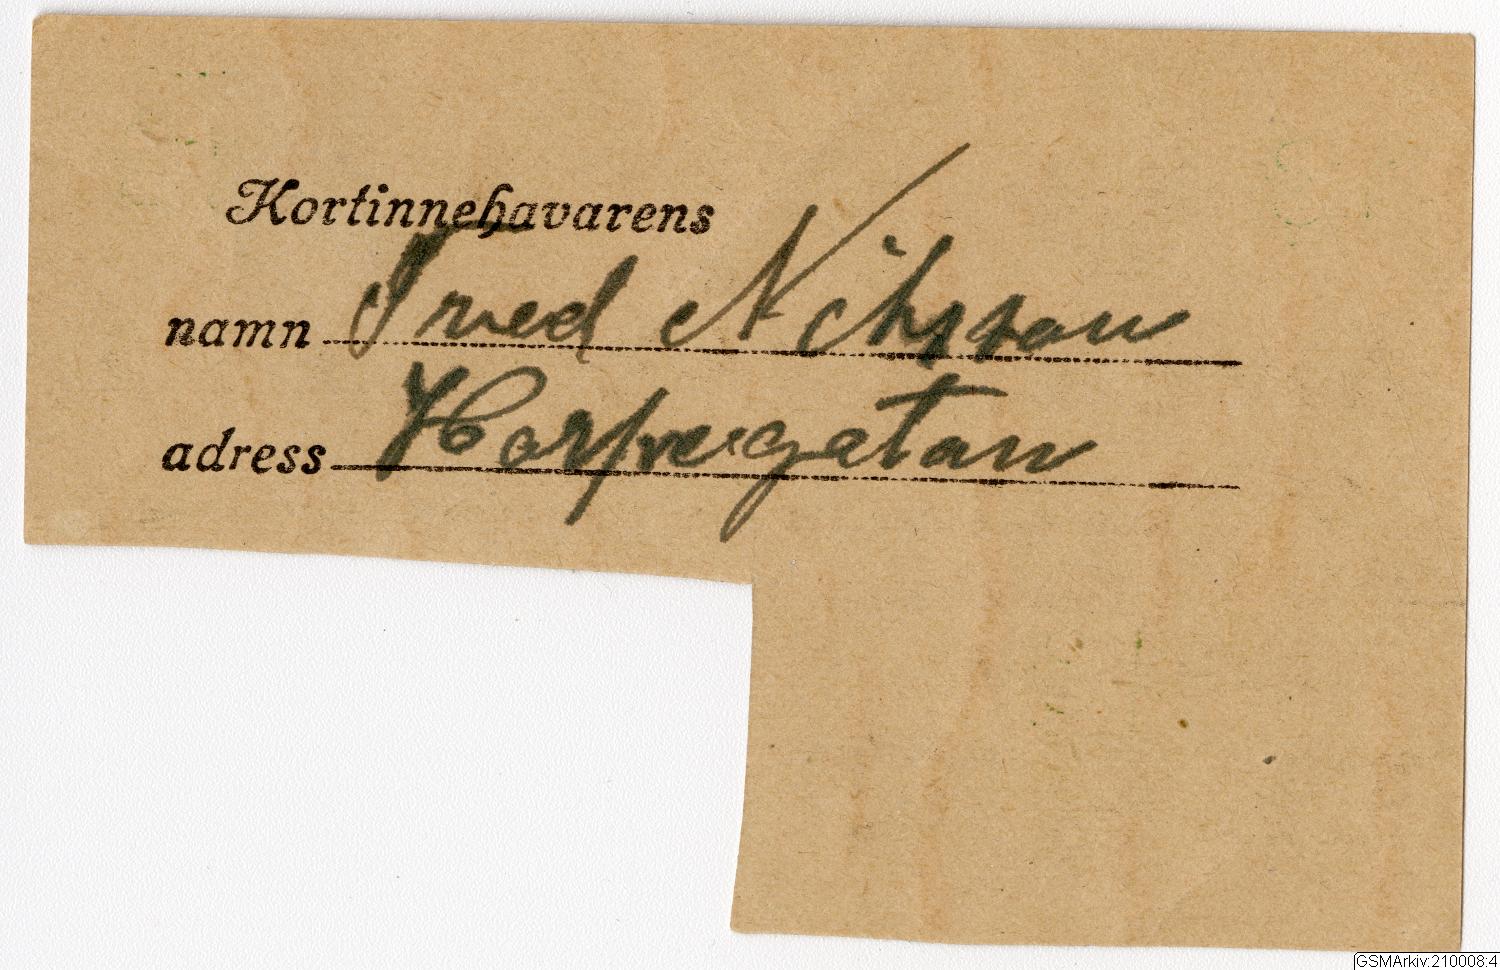 Kortinnehavarens
namn Fred Nilsson
adress gatan
GSMArkiv:210008:4